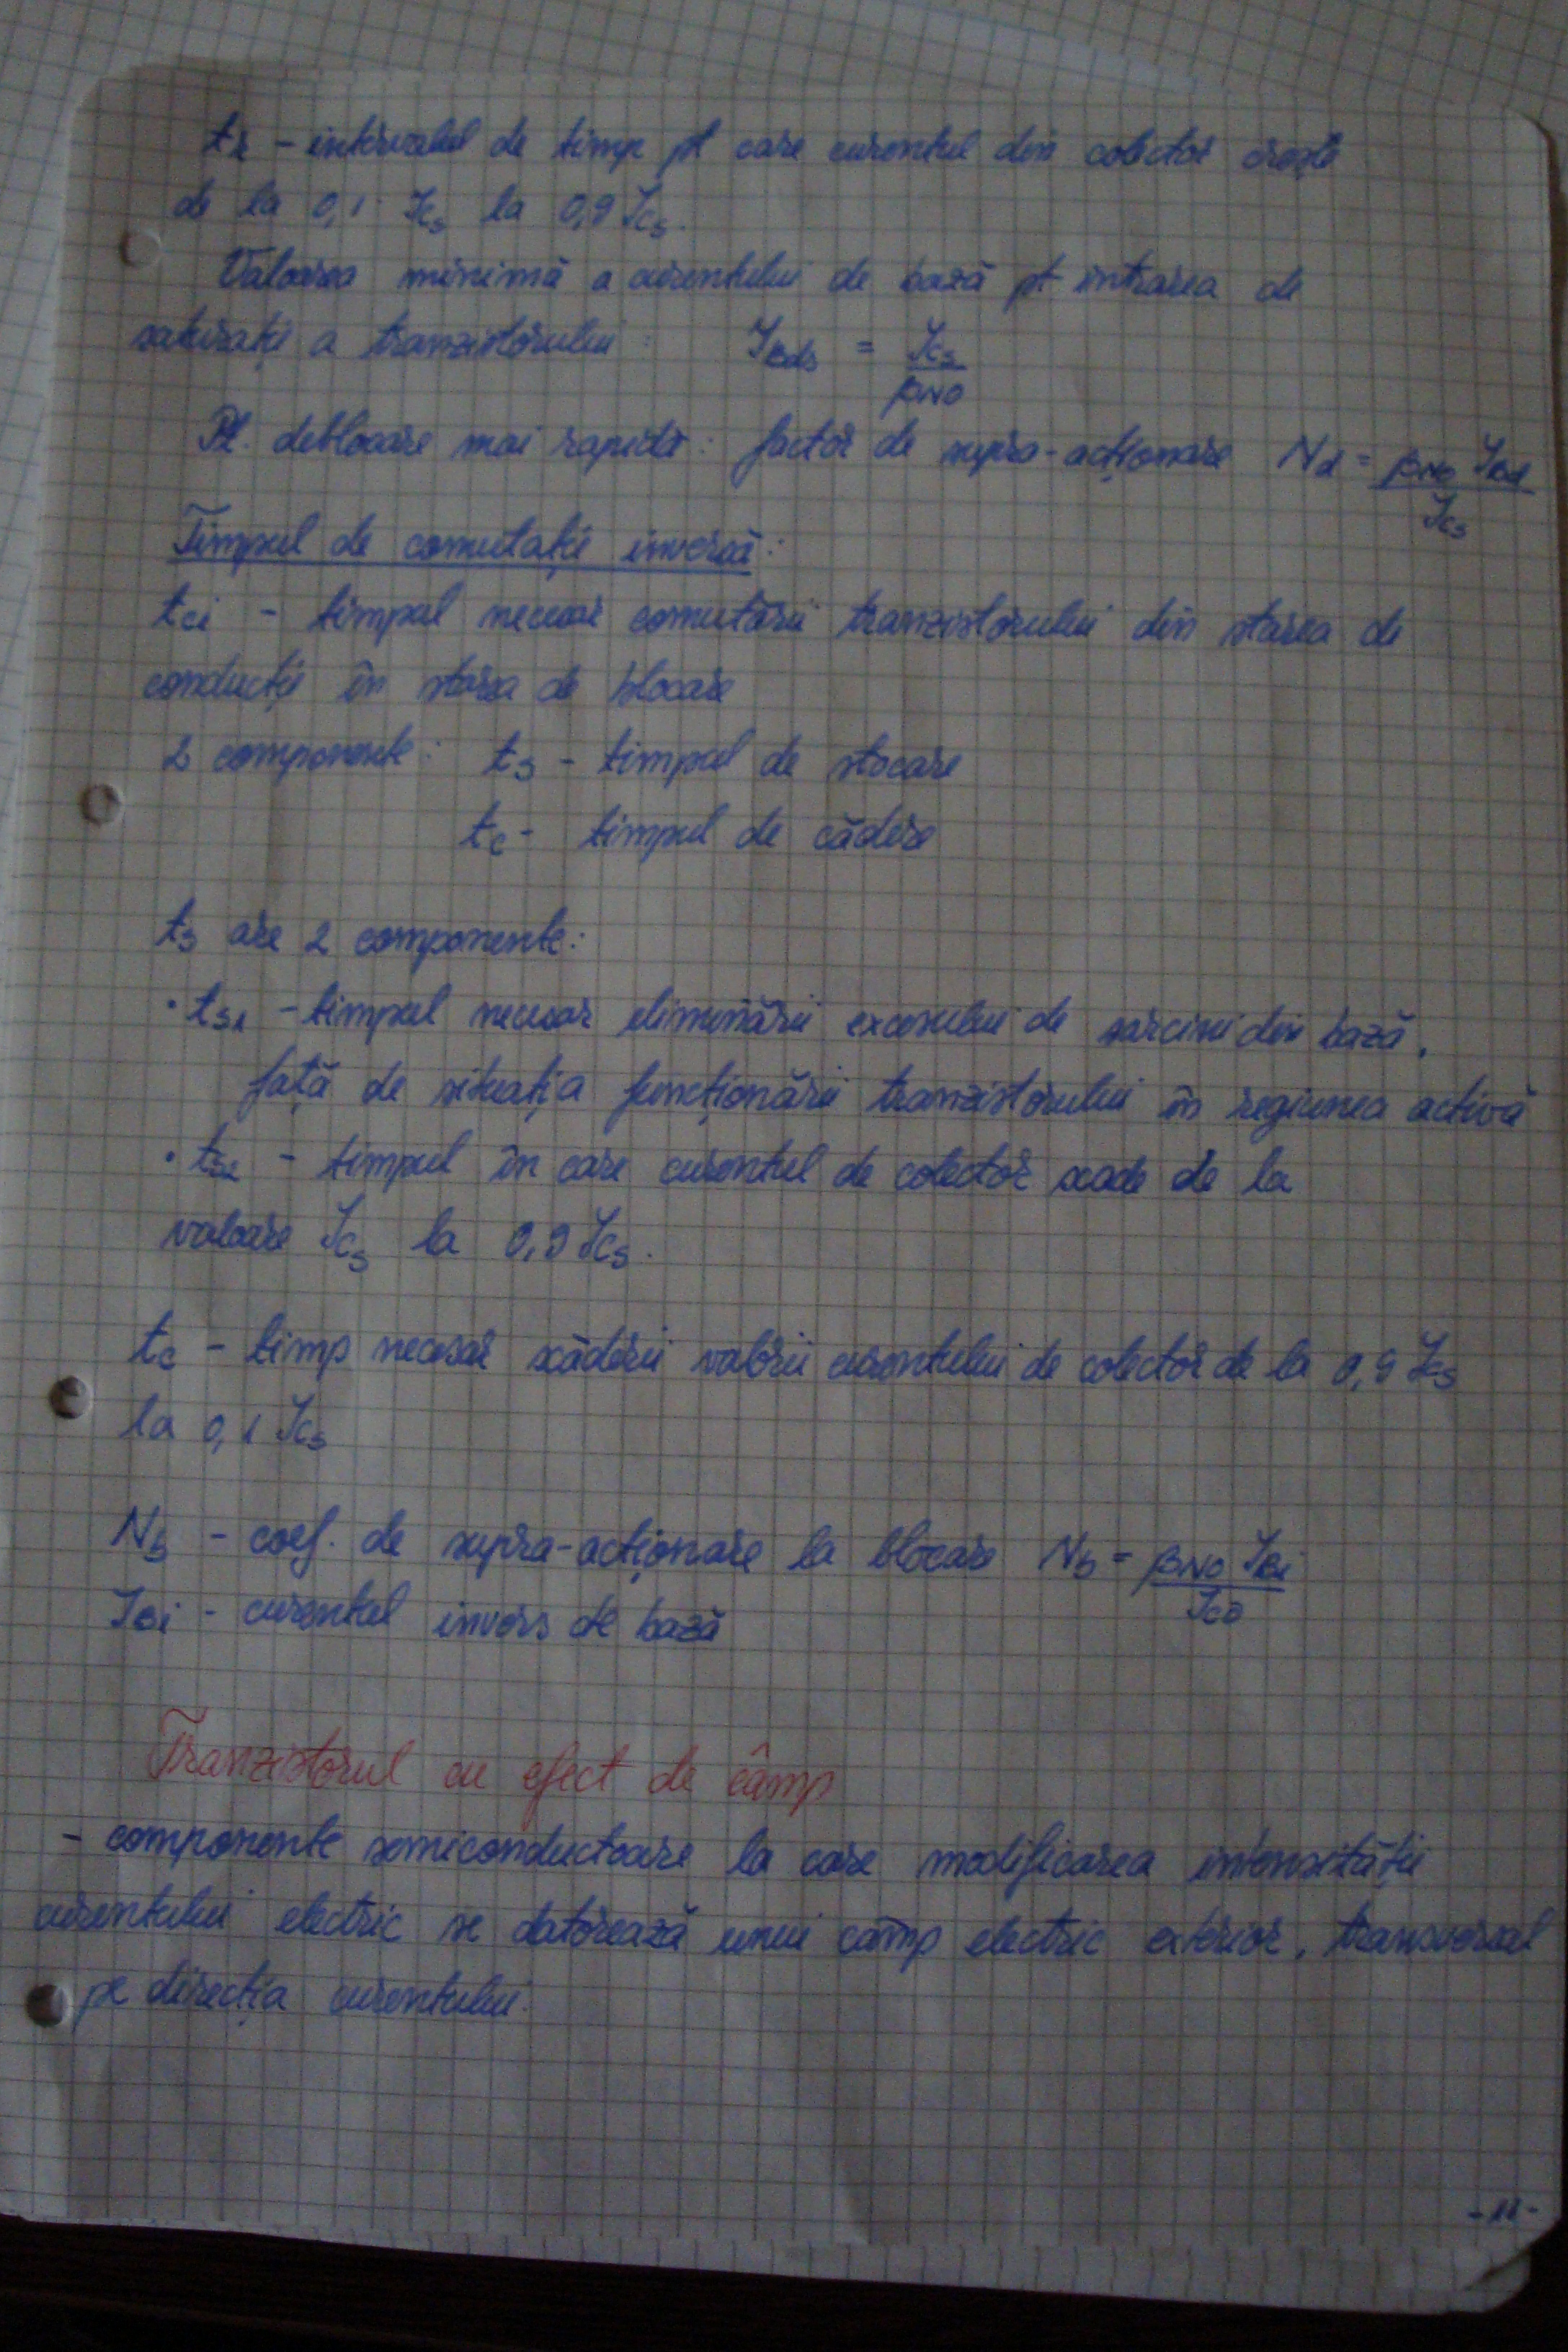 tr - intervalul de timp pt care curentul din colector crește
de la 0,1 Ics la 0,9 Ics.
Valoarea minimă a curentului de bază pt intrarea de
saturație a tranzistorului : IBds = Ics / βN0
Pt. deblocare mai rapidă : factor de supra-acționare Nd = βN0 IBd / Ics
Timpul de comutație inversă :
tci - timpul necesar comutării tranzistorului din starea de
conducție în starea de blocare
2 componente : ts - timpul de stocare
tc - timpul de cădere
ts are 2 componente :
· ts1 - timpul necesar eliminării excesului de sarcini din bază,
față de situația funcționării tranzistorului în regiunea activă
· ts2 - timpul în care curentul de colector scade de la
valoare Ics la 0,9 Ics.
tc - timp necesar scăderii valorii curentului de colector de la 0,9 Ics
la 0,1 Ics
Nb - coef. de supra-acționare la blocare Nb = βN0 IBi / Ics
IBi - curentul invers de bază
Tranzistorul cu efect de câmp
- componente semiconductoare la care modificarea intensității
curentului electric se datorează unui câmp electric exterior, transversal
pe direcția curentului.
- 11 -